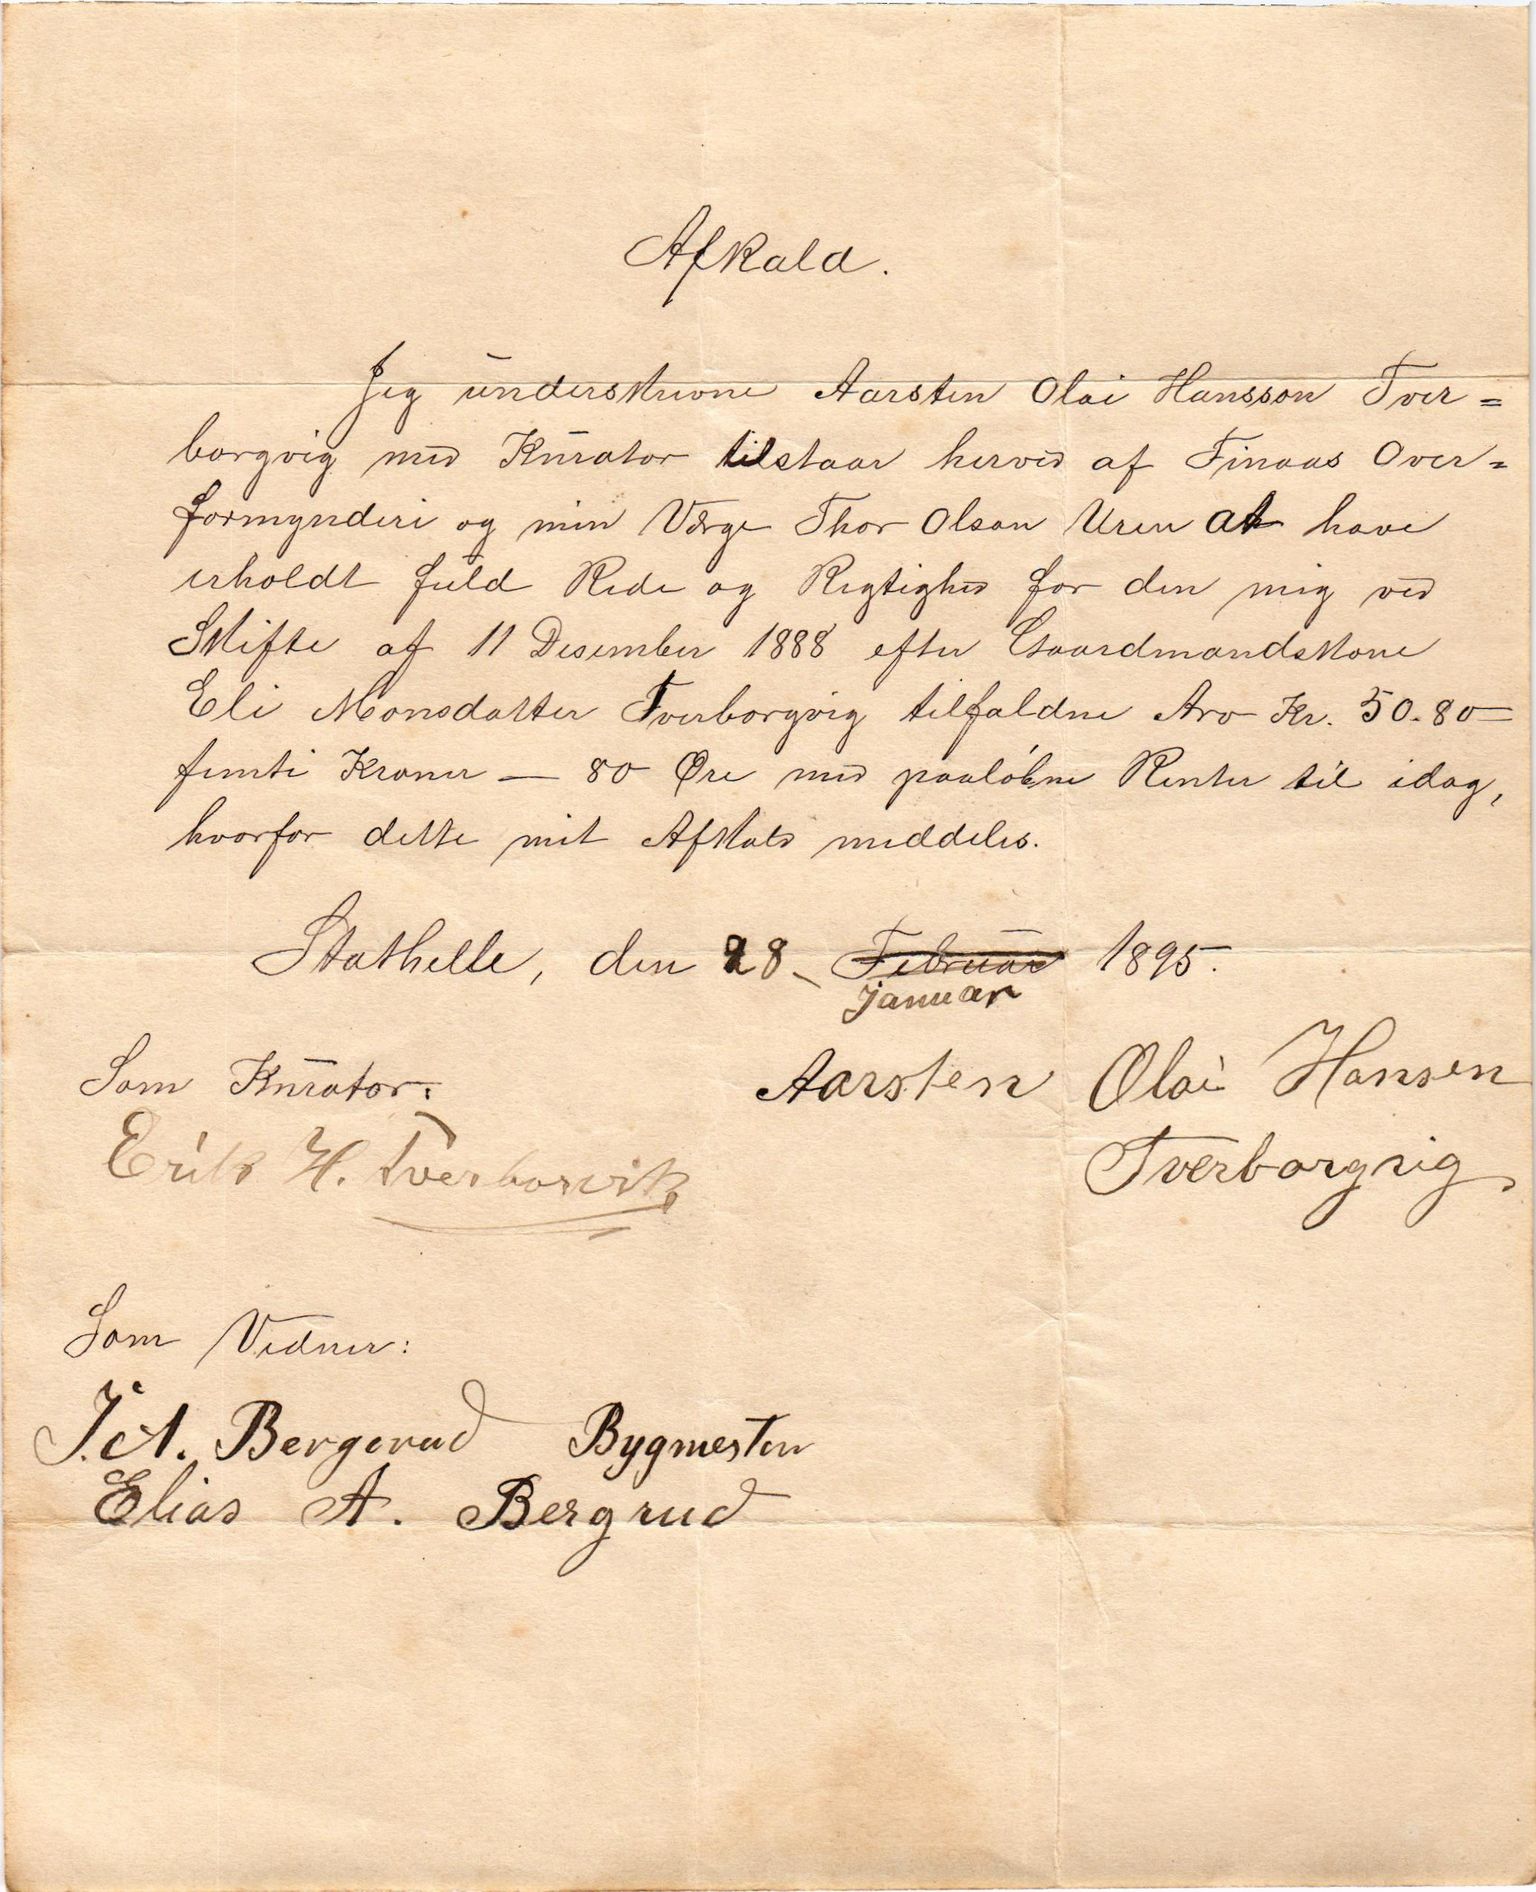 Afkald.
Jeg underskrevne Aarsten Olai Hansson Tver=
borgvig med Kurator tilstaar herved af Finaas Over=
formynderi og min Værge Thor Olson Uren at have
erholdt fuld Rede og Rigtighed for den mig ved
Skifte af 11 Desember 1888 efter Gaardmandskone
Eli Monsdatter Tverborgvig tilfaldne Arv Kr. 50.80
femti Kroner — 80 Øre med paaløbne Renter til idag,
hvorfor dette mit Afkald meddeles.
Stathelle, den 28 Februar 1895.
Januar
Som Kurator:
Erik H. Tverborvik
Aarsten Olai Hansen
Tverborgvig
Som Vidner:
J. A. Bergerud Bygmester
Elias A. Bergrud